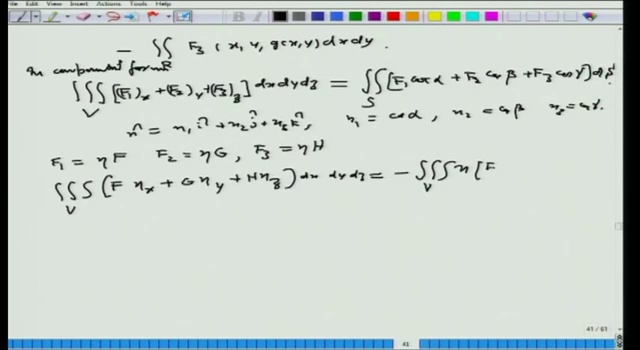 File Edit View Insert Actions Tools Help
− ∬_R F₃ (x, y, g(x, y)) dx dy.
In component form
∭_V [(F₁)_x + (F₂)_y + (F₃)_z] dx dy dz = ∬_S [F₁ cos α + F₂ cos β + F₃ cos γ] dS
n̂ = n₁ î + n₂ ĵ + n₃ k̂, n₁ = cos α, n₂ = cos β n₃ = cos γ.
F₁ = η F F₂ = η G, F₃ = η H
∭_V (F η_x + G η_y + H η_z) dx dy dz = − ∭_V η [F
41 / 61
41